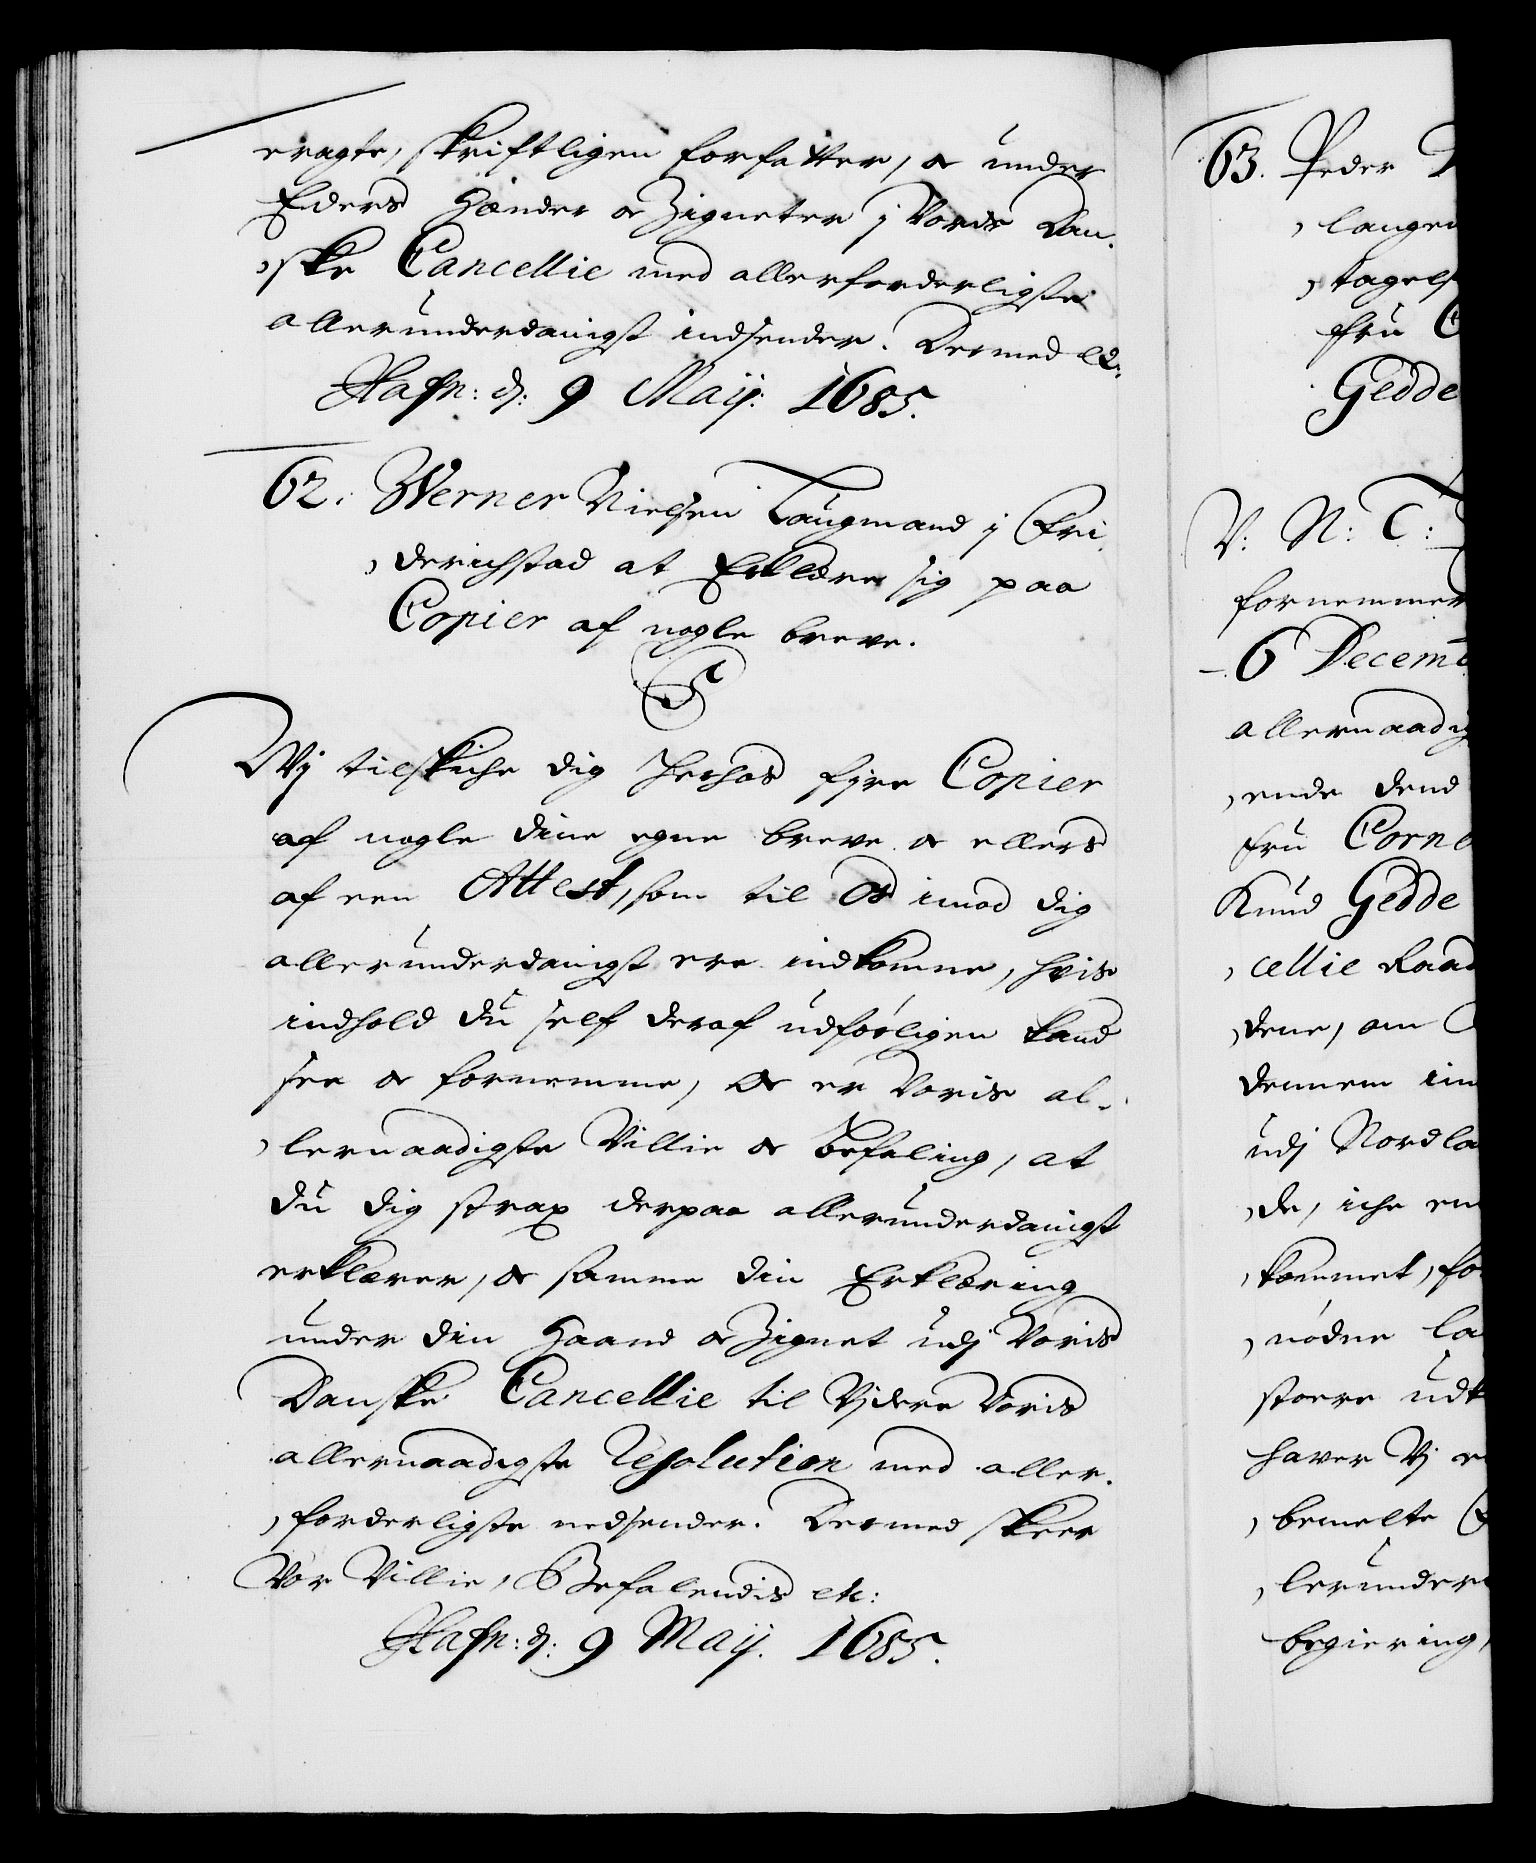 eragte, skriftligen forfatter, oc under
Eders Hænder oc Zigneter j Voris Dan-
,ske Cancellie med allerforderligste
allerunderdanigst indsender. Dermed etc.
Hafn: d: 9 Maij: 1685.
62. Werner Nielsen Laugmand j Fri-
,derichstad at Erklære sig paa
Copier af nogle breve.
S
Wj tilskiche dig herhos fyre Copier
af nogle dine egne breve oc ellers
af een Attest, som til Os imod dig
allerunderdanigst ere indkomne, hvis
indhold du self deraf udførligen kand
see oc fornemme, Oc er Voris al-
,lernaadigste Villie oc befaling, at
du dig strax derpaa allerunderdanigst
erklærer, oc samme din Erklæring
under din Haand oc Zignet udj Voris
Danske Cancellie til Vjdere Voris
allernaadigste Resolution med aller-
,forderligste nedsender. Dermed skeer
Vor Villie, Befalendis etc:
Hafn: d: 9 Maij. 1685.
63. Peder
, langen
, tagels
Fru C
Gedde
V: N: T:
fornemmer
6 Decemb
allernaadig
,ende dend
Fru Corne
Knud Gedde
,cellie Raad
,dene, om
dennem im
udj Nordla
,de, iche en
,kommet, fo
,nødne la
stoere udt
haver Vj
, bemelte
,lerunder
begiering,